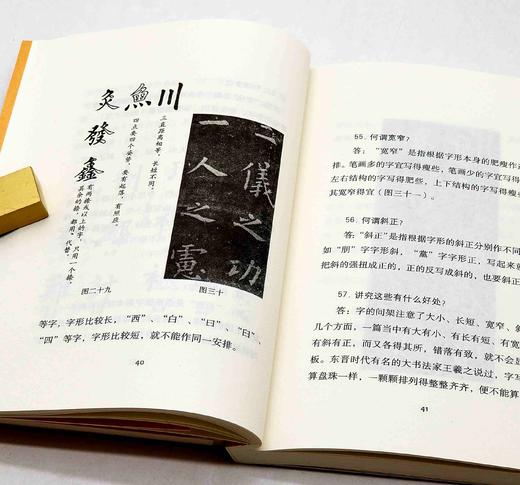 川
魚
灸
發
鑫
三直距离相等，长短不同，
四点要四个姿势，要有起落，有照应，
有两捺以上的字，只用一个捺，
其余的捺，都用、代替。
二儀之功
一人之慮
图二十九
图三十
等字，字形比较长，“西”、“白”、“曰”、“曰”、
“四”等字，字形比较短，就不能作同一安排。
40
55. 何谓宽窄？
答：“宽窄”是指根据字形本身的肥瘦作
排。笔画多的字宜写得瘦些，笔画少的字宜写得
左右结构的字写得肥些，上下结构的字写得瘦
其宽窄得宜（图三十一）。
56. 何谓斜正？
答：“斜正”是指根据字形的斜正分别作不同
如“朋”字字形斜，“
”字字形正，写起来
把斜的强扭成正的，正的反写成斜的，也要斜正
57. 讲究这些有什么好处？
答：字的间架注意了大小、长短、宽窄、斜
几个方面，一篇当中有大有小、有长有短、有宽
有斜有正，而又各得其所，错落有致，就不会是
板。东晋时代有名的大书法家王羲之说过，字写
算盘珠一样，一颗颗排列得整整齐齐，便不能算
41